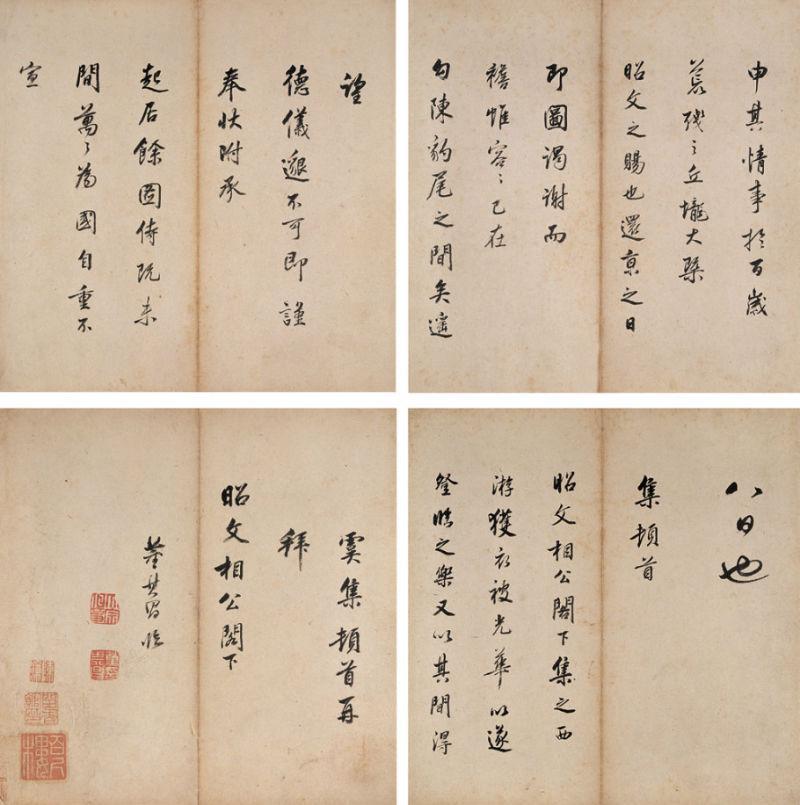 八日也
集頓首
昭文相公閣下集之西
游獲衣被光華以遂
登臨之樂又以其間得
申其情事於百歲
荒殘之丘壠大槩
昭文之賜也還京之日
即圖謁謝而
襜帷容〻已在
勾陳豹尾之間矣遙
望
德儀邈不可即謹
奉狀附承
起居餘圖侍未
間萬〻為國自重不
宣
虞集頓首再
拜
昭文相公閣下
董其昌臨